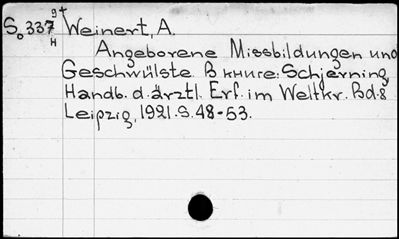 So 337 9+ Weinert, A.
H
Angeborene Missbildungen und
Geschwülste. В книге: Schjerning,
Handb. d. ärztl. Erf. im Weltkr. Bd. 8
Leipzig, 1921. S. 48-53.